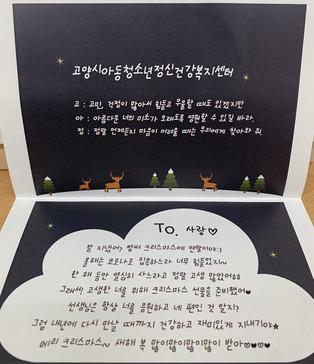 고양시아동청소년정신건강복지센터
고 : 고민, 걱정이 많아서 힘들고 우울할 때도 있겠지만
아 : 아름다운 너의 미소가 오래도록 영원할 수 있길 바라.
정 : 정말 언제든지 마음이 어려울 때는 우리에게 찾아와 줘.
To. 사랑♡
잘 지냈어? 벌써 크리스마스에 연말이야:)
올해는 코로나로 집콕하느라 너무 힘들었지~
한 해 동안 열심히 사느라고 정말 고생 많았어††
그래서 고생한 너를 위해 크리스마스 선물을 준비했어♥
선생님은 항상 너를 응원하고 네 편인 것 알지?
그럼 내년에 다시 만날 때까지 건강하고 재미있게 지내기야★
메리 크리스마스~ 새해 복 많이많이많이많이 받아♡♥♡♥